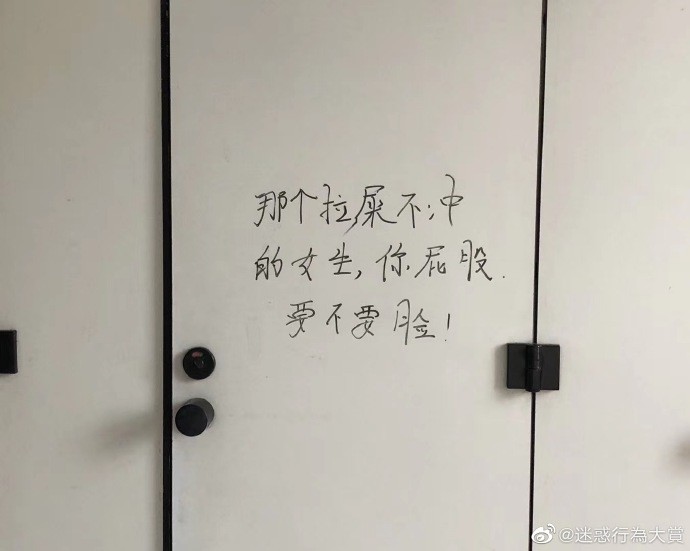 那个拉屎不冲
的女生，你屁股
要不要脸！
@迷惑行為大賞